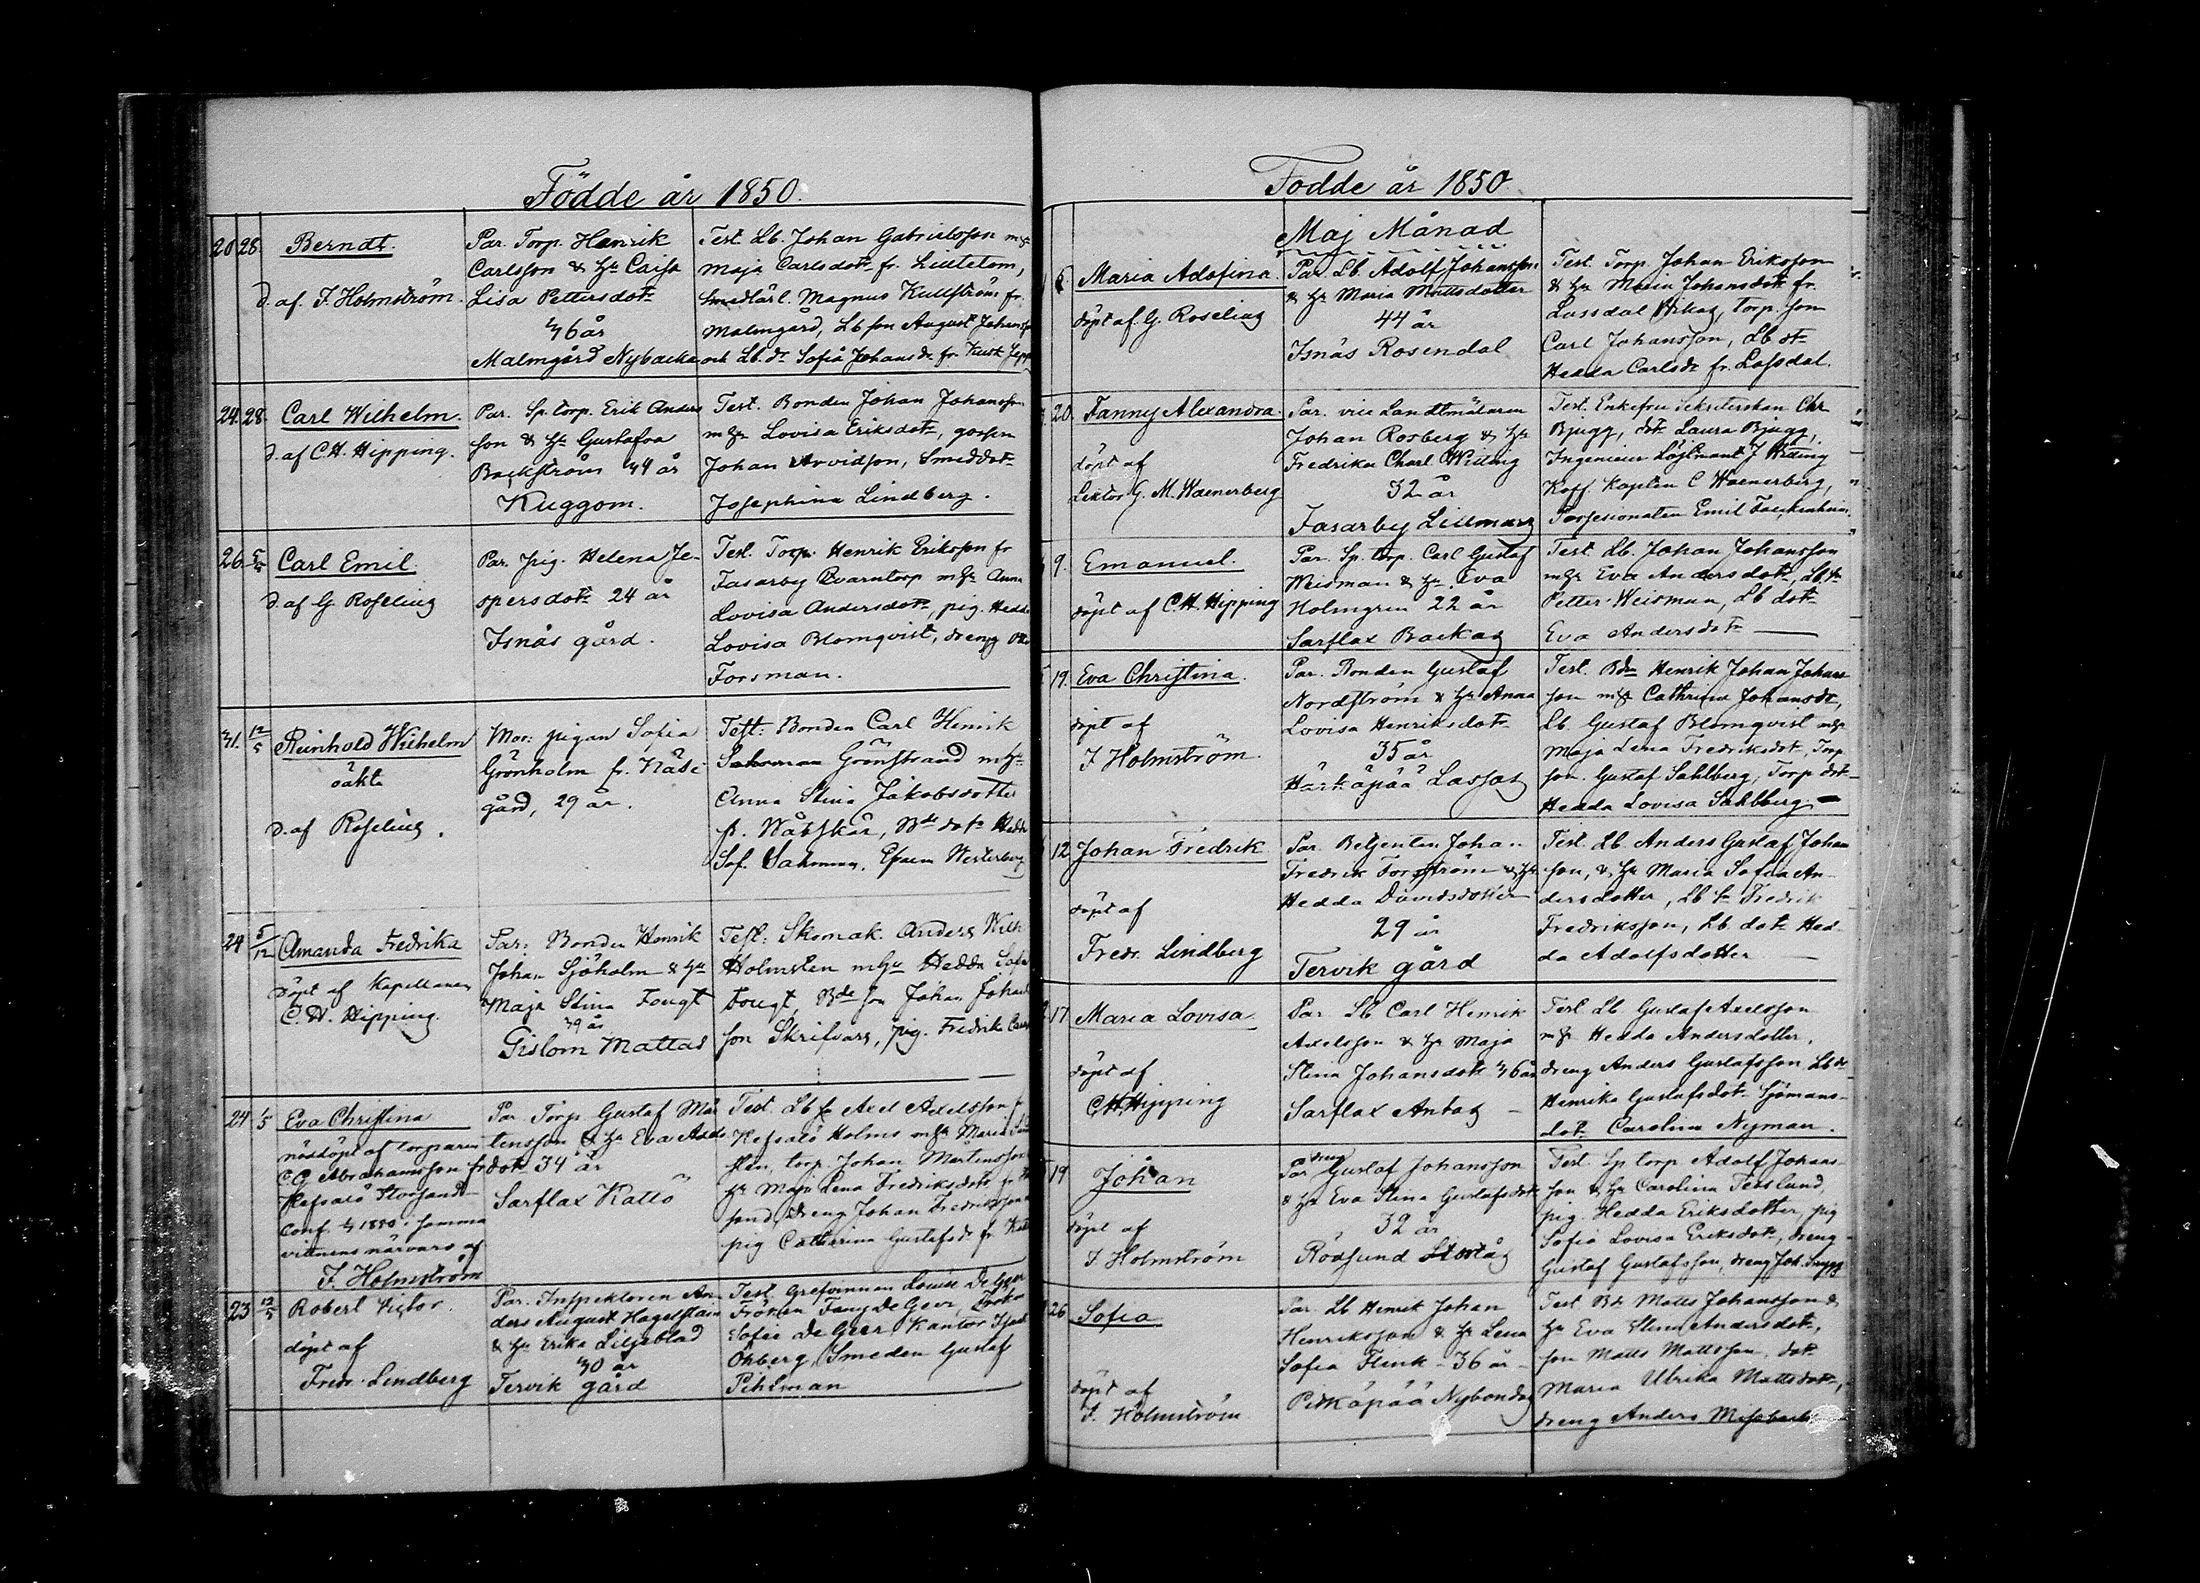 Födde år 1850.
20. 28. Berndt.
d. af. J. Holmström.
Par. Torp. Henrik
Carlsson & hu Caisa
Lisa Pettersdotr
46 år
Malmgård Nybacka
Test. Lb. Johan Gabrielsson m hu
Maja Carlsdotr fr. Lilletom,
Smedlärl. Magnus Kullström fr.
Malmgård, Lb son August Johans
och Lb. dr Sofia Johansdr fr. Kusk
24. 28. Carl Wilhelm.
d. af C.H. Hipping.
Par. Sp. torp. Erik Anders
son & hu Gustafva
Backström 44 år
Kuggom.
Test. Bonden Johan Johansson
m hu Lovisa Eriksdotr, gossen
Johan Arvidson, Smeddotr
Josephina Lindberg.
26. 5/5 Carl Emil
d. af G. Roselius
Par. Pig. Helena Je-
spersdotr 24 år
Isnäs gård.
Test. Torp. Henrik Eriksson fr
Fasarby Qvarntorp m hu Anna
Lovisa Andersdotr, pig. Hedda
Lovisa Blomqvist, dreng
Forsman.
31. 12/5 Reinhold Wilhelm
oäkta
d. af Roselius.
Mor: pigan Sofia
Grönholm fr. Näse
gård, 29 år.
Test: Bonden Carl Henrik
Grönstrand m hu
Anna Stina Jakobsdotter
fr. Våtskär, Bde dotr Hedda
Sof. Sahman, Efraem Westerberg
24 5/12 Amanda Fredrika
döpt af Kapellanen
C. H. Hipping.
Par: Bonden Henrik
Johan Sjöholm & hu
Maja Stina Fougt
39 år
Gislom Mattas
Test: Skomak. Anders Wilh
Holmsten m hu Hedda Sofia
Fougt, Bde son Johan Johans
son Skrifvars, pig. Fredrik
24 1/5 Eva Christina
nöddöpt af torparen
C G Abrahamsson fr
Kefsalö Storsand
Conf. 1850 i samma
vittnens närvaro af
J. Holmström
Par. Torp. Gustaf Mår
tensson & hu Eva Axels
dotr 34 år
Sarflax Kallö
Test. Lb so Axel Axelsson
Kefsalö Holms m hu Maria
sten, torp. Johan Mårtensson
hu Maja Lena Fredriksdotr fr
sand, dreng Johan Fredriksson
pig Catharina Gustafsdr fr.
23 12/5 Robert Victor.
döpt af
Fredr. Lindberg
Par. Inspektoren An-
ders August Hagelstam
& hu Erika Liljeblad
30 år
Tervik gård
Test. Grefvinnan Louise De Geer
Fröken Fany De Geer, Frökn
Sofie de Geer Kantor
Öhberg, Smeden Gustaf
Pihlman
Födde år 1850
Maj Månad
6. Maria Adofina.
döpt af. G. Roselius
Par. Lb. Adolf Johansson
& hu Maria Mattsdotter
44 år
Isnäs Rosendal
Test. Torp. Johan Eriksson
& hu Maria Johansdotr fr.
Lassdal, torp. son
Carl Johansson, Lb dtr
Hedda Carlsdr fr. Lassdal.
20. Fanny Alexandra.
döpt af
Lektor G. M. Waenerberg
Par. vice Landtmätaren
Johan Rosberg & hu
Fredrika Charl Widing
32 år
Fasarby Lillmars
Test. Enkefru Sekreterskan Chr
Bjugg, dtr Laura Bjugg,
Ingenieur Löjtnant J Widing
Koff. Kapten C Waenerberg,
Possesionaten Emil
9. Emanuel.
döpt af C.H. Hipping
Par. Sp. torp. Carl Gustaf
Weisman & hu Eva
Holmgren 22 år
Sarflax Backas
Test. Lb. Johan Johansson
m hu Eva Andersdotr, Lb. so
Petter Weisman, Lb dotr
Eva Andersdotr
19. Eva Christina.
döpt af
J Holmström.
Par. Bonden Gustaf
Nordström & hu Anna
Lovisa Henriksdotr
35 år
Härkäpää Lassas
Test. Bdn Henrik Johan Johans
son m hu Cathrina Johansdr,
Lb. Gustaf Blomqvist m hu
Maja Lena Fredriksdotr, Torp.
son. Gustaf Sahlberg, Torp dotr
Hedda Lovisa Sahlberg.
12 Johan Fredrik
döpt af
Fredr. Lindberg
Par. Betjenten Johan
Fredrik Forsström & hu
Hedda Davidsdotter
29 år
Tervik gård
Test. Lb. Anders Gustaf Johans
son, & hu Maria Sofia An-
dersdotter, Lb so Fredrik
Fredriksson, Lb. dotr Hed-
da Adolfsdotter
17 Maria Lovisa
döpt af
C.H. Hipping
Par. Lb Carl Henrik
Axelsson & hu Maja
Stina Johansdotr 36 år
Sarflax Antas
Test Lb Gustaf Axelsson
m hu Hedda Andersdotter,
dreng Anders Gustafsson Lb dr
Henrika Gustafsdotr Sjömans-
dotr Carolina Nyman.
19 Johan
döpt af
J Holmström
Par dreng Gustaf Johansson
& hu Eva Stina Gustafsdotr
32 år
Rödsund
Test. Sp torp Adolf Johans-
son & hu Carolina Terslund,
pig. Hedda Eriksdotter, pig
Sofia Lovisa Eriksdotr, dreng
Gustaf Gustafsson, dreng Joh.
26 Sofia
döpt af
J. Holmström
Par. Lb Henrik Johan
Henriksson & hu Lena
Sofia Flink - 36 år
Pitkäpää Nybondas
Test Bd Matts Johansson &
hu Eva Stina Andersdotr,
son Matts Mattsson, dotr
Maria Ulrika Mattsdotr,
dreng Anders